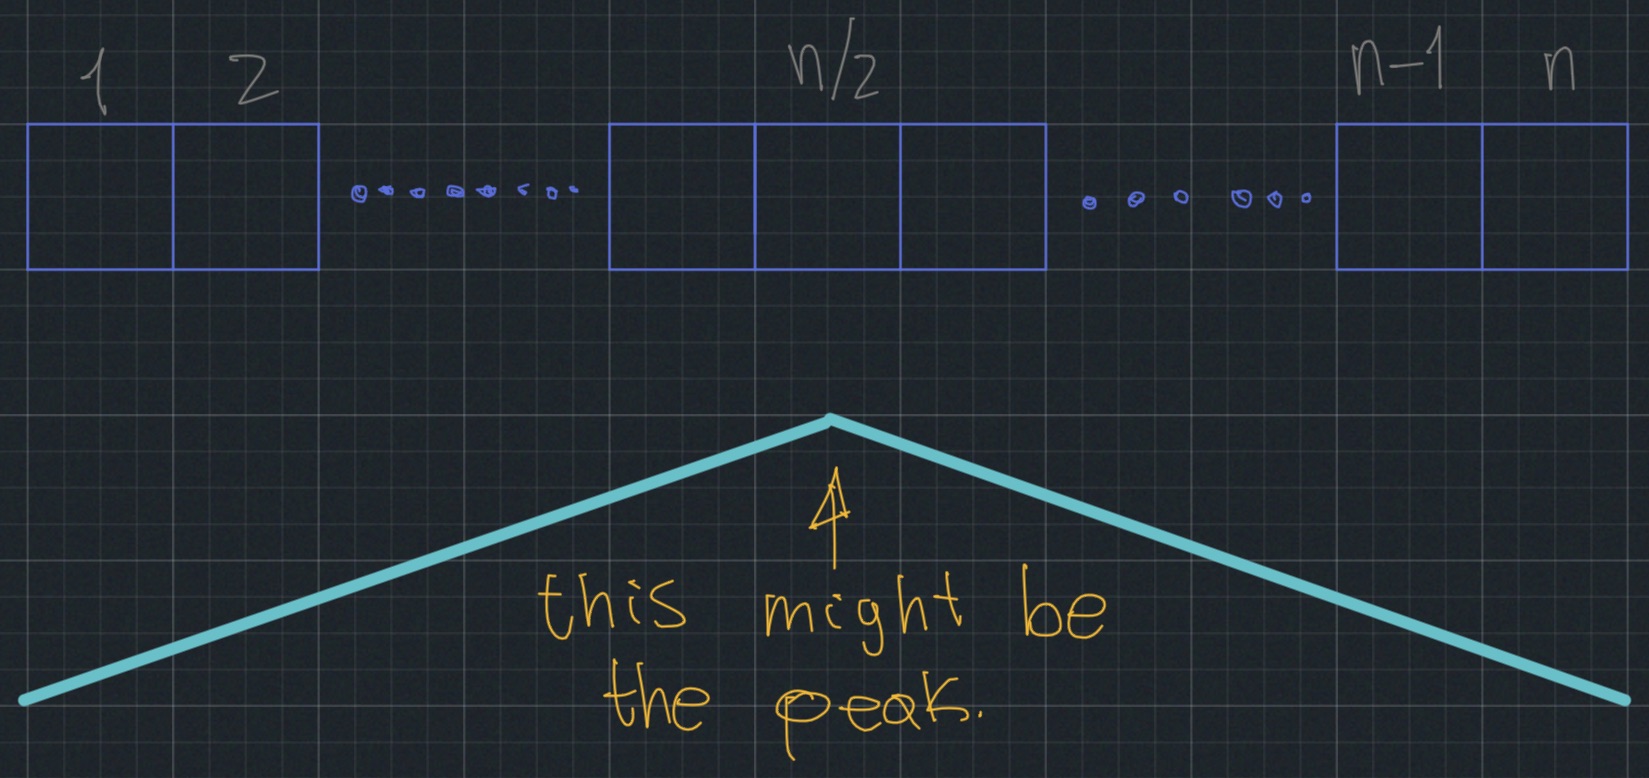 1 2 n/2 n-1 n
this might be
the peak.